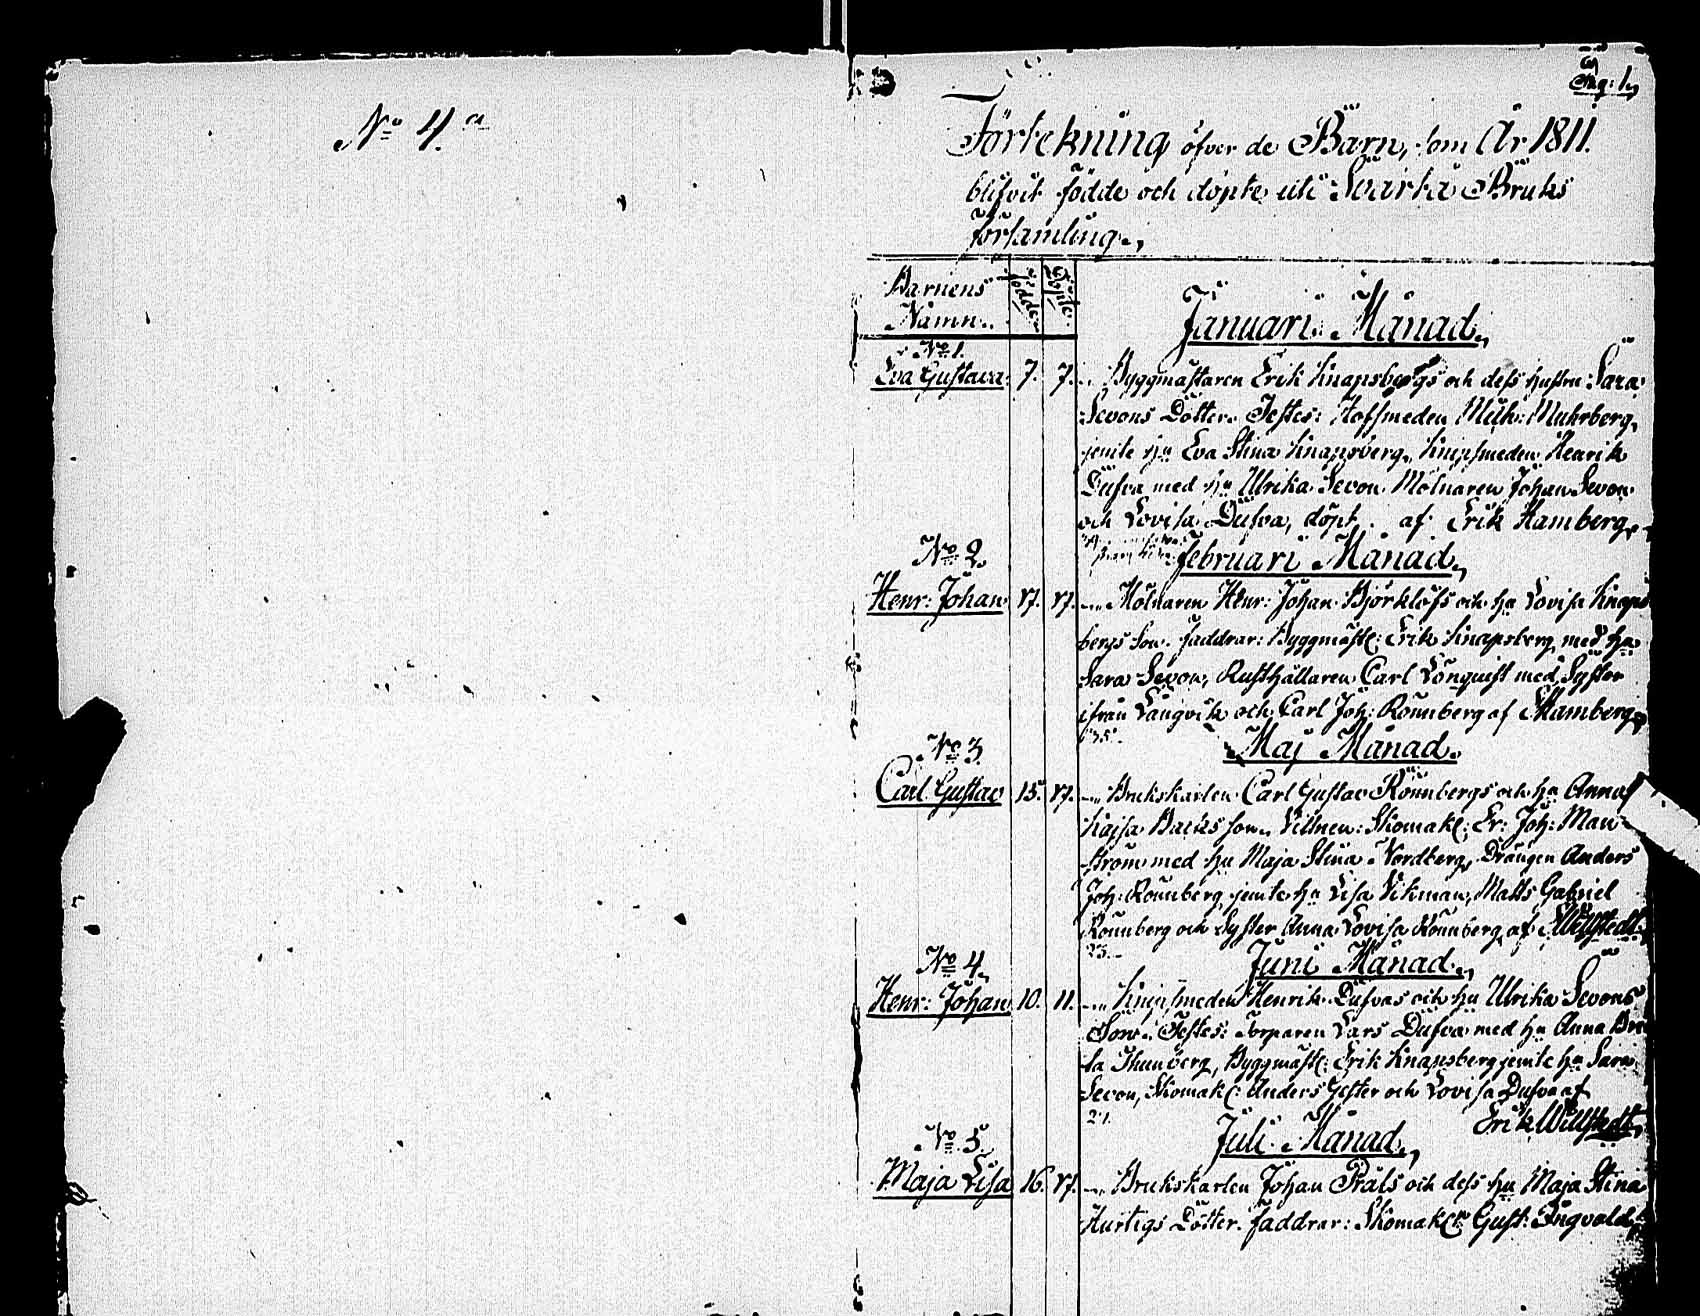 No 4.a
Pag: 1.
Förtekning öfver de Barn, som År 1811.
blifvit födde och döpte uti Svartå Bruks
församling.
Barnens Namn.
födde.
Döpte.
Januari Månad.
No 1.
Eva Gustava. 7. 7. Byggmästaren Erik Knapsbergs och dess hustru Sara
Sevons Dotter. Testes: Hofsmeden Mich: Muhrberg,
jemte hu Eva Stina Knapsberg, Knipsmeden Henrik
Dufva med hu Ulrika Sevon. Mölnaren Johan Sevon
och Lovisa Dufva, döpt af Erik Hamberg.
No 2.
Februari Månad.
Henr: Johan 17. 17. Mölnaren Henr: Johan Björklöfs och hu Lovisa Knaps
bergs Son. Faddrar: Byggmäst: Erik Knapsberg med hu
Sara Sevon, Rusthållaren Carl Lönquist med Syster
ifrån Långvik och Carl Joh: Rönnberg af Hamberg.
35.
No 3.
Maj Månad.
Carl Gustav 15. 17. Brukskarlen Carl Gustav Rönnbergs och hu Anna
Kajsa Backs son. Vittnen: Skomak: Er: Joh: Man
ström med hu Maja Stina Nordberg, Drängen Anders
Joh: Rönnberg jemte hu Lisa Vikman, Matts Gabriel
Rönnberg och Syster Anna Lovisa Rönnberg af Willstedt.
23.
No 4.
Juni Månad.
Henr: Johan 10. 11. Knipsmeden Henrik Dufvas och hu Ulrika Sevons
Son. Testes: Torparen Lars Dufva med hu Anna Bri
ta Thunberg, Byggmäst: Erik Knapsberg jemte hu Sara
Sevon, Skomak: Anders Gister och Lovisa Dufva af
Erik Willstedt.
21.
No 5.
Juli Månad.
Maja Lisa 16. 17. Brukskarlen Johan Pråls och dess hu Maja Stina
Hurtigs Dotter. Faddrar: Skomak: Gust: Ingvald,